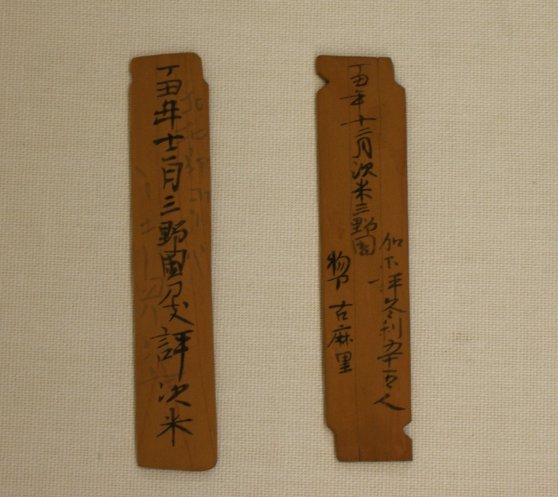 丁丑年十二月次米三野国
加尓評久々利五十戸人
物部 古麻里
丁丑年十二月三野国刀支評次米